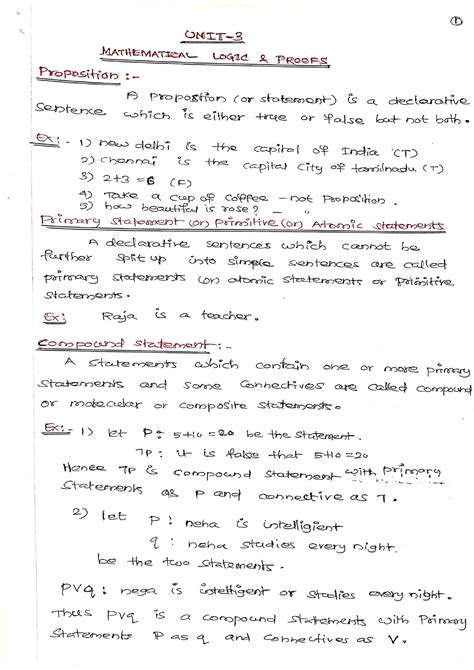 ①
UNIT-3
MATHEMATICAL LOGIC & PROOFS
Proposition :-
A Proposition (or statement) is a declarative
Sentence which is either true or false but not both.
Ex: - 1) new delhi is the capital of India (T)
2) Chennai is the capital city of tamilnadu (T)
3) 2+3 = 6 (F)
4) Take a cup of coffee - not Proposition.
5) how beautiful is rose? - "
Primary Statement (or) Primitive (or) Atomic statements
A declarative sentences which cannot be
further split up into simple sentences are called
primary statements (or) atomic statements or Primitive
Statements.
Ex: Raja is a teacher.
Compound statement: -
A statements which contain one or more primary
Statements and some Connectives are called compound
or molecular or composite statements.
Ex: - 1) let P: 5+10=20 be the statement.
7P: it is false that 5+10=20
Hence 7P is compound statement with primary
Statements as P and connective as 7.
2) let P : neha is intelligient
q : neha studies every night.
be the two statements.
PVq : nega is intelligent or studies every night.
Thus PVq is a compound statements with Primary
Statements P as q and connectives as V.